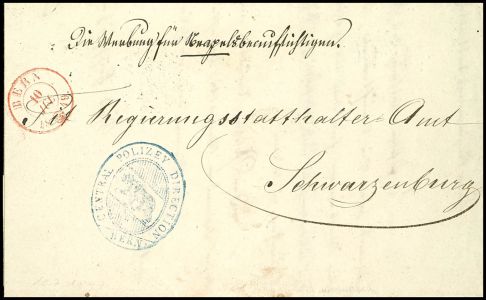 Die Werbung für Neapels beaufsichtigen.
BERN
10
Tit Regierungsstatthalter-Amt
Schwarzenburg
CENTRAL POLIZEY DIRECTION
BERN